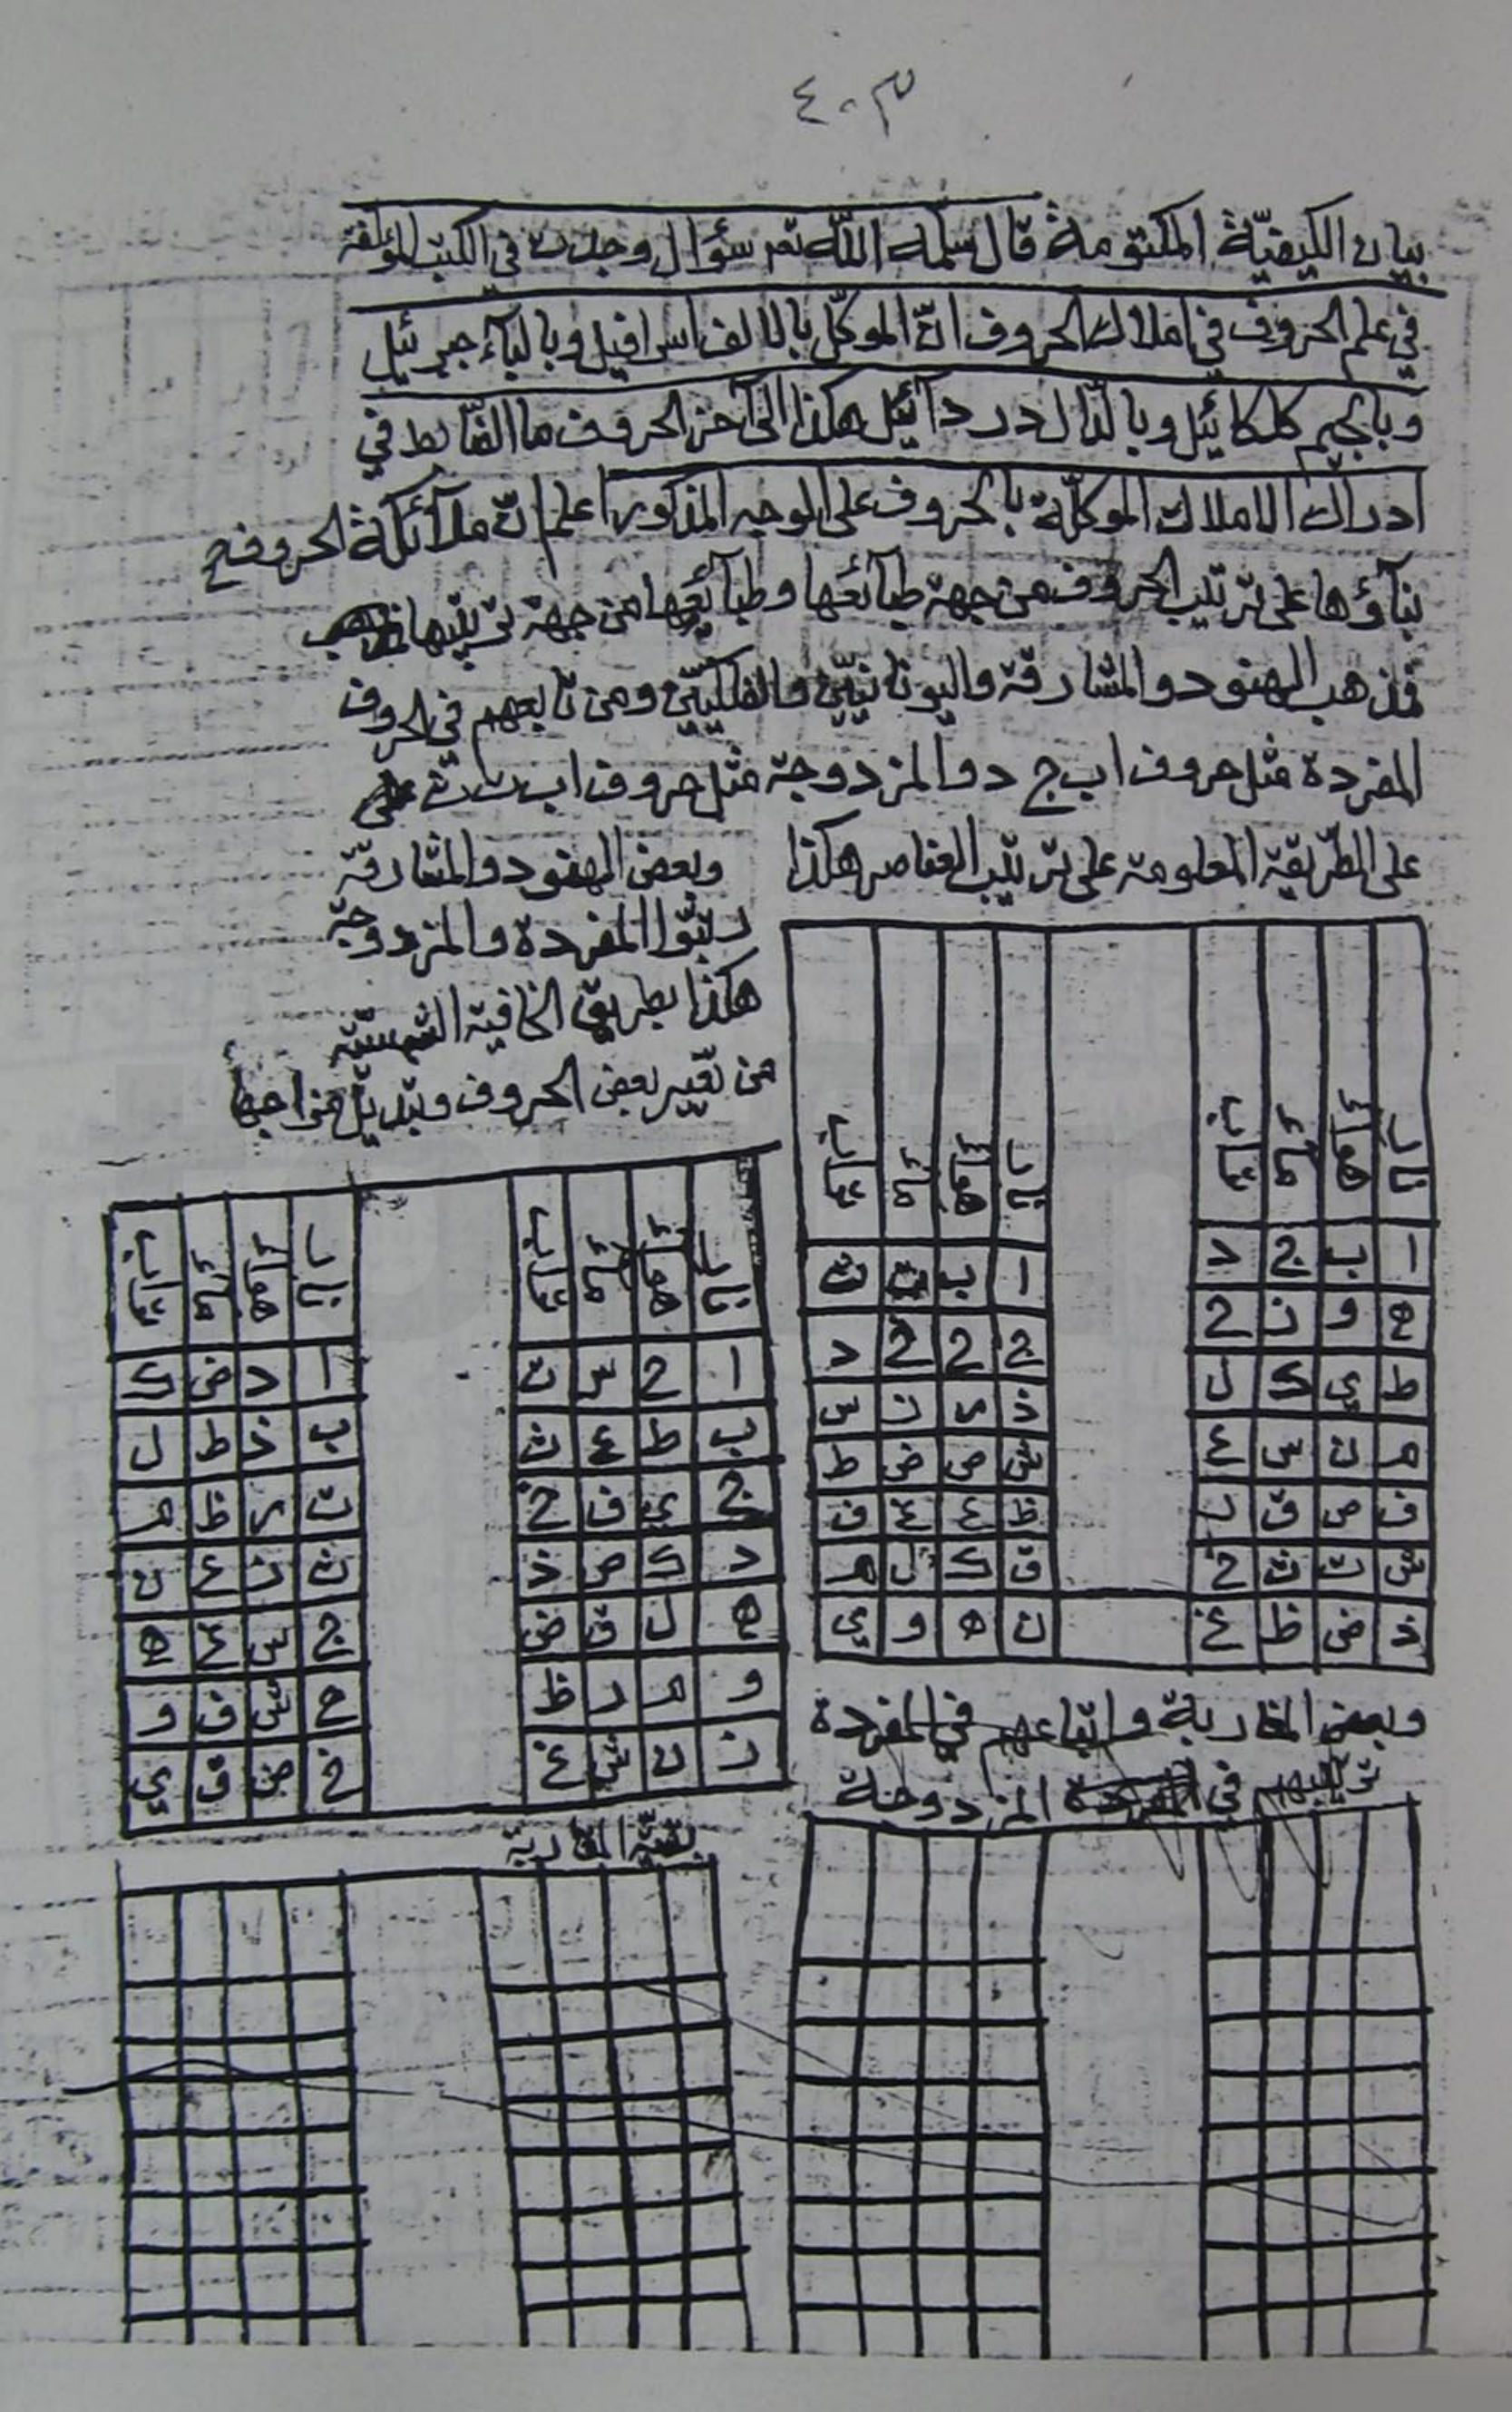 ٤٠٣
بيان الكيفيّة المكتومة قال سلمه اللّه تعـ سؤال وجدت في الكتب المؤلفة
في علم الحروف في املاك الحروف انّ الموكّل بالالف اسرافيل وبالبآء جبرئيل
وبالجيم كلكائيل وبالدّال دردآئيل هكذا الى آخر الحروف ما الضّابط في
ادراك الاملاك الموكّلة بالحروف على الوجه المذكور اعلم انّ ملآئكة الحروف
بنآؤها على ترتيب الحروف من جهة طبآئعها وطبآئعها من جهة ترتيبها
فمذهب الهنود والمشارقة واليونانيّين والفلكيّين ومن تابعهم في الحروف
المفردة مثل حروف اب ج د والمزدوجة مثل حروف اب ت ث على
على الطّريقة المعلومة على ترتيب العناصر هكذا
ا ب ج د
ه و ز ح
ط ي ك ل
م ن س ع
ف ص ق ر
ش ت ث خ
ذ ض ظ غ
ا ب ت ث
ج ح خ د
ذ ر ز س
ش ص ض ط
ظ ع غ ف
ق ك ل م
ن ه و ي
وبعض الهنود والمشارقة
رتبّوا المفردة والمزدوجة
هكذا بطريق الخافية الشمسيّة
من تغيير بعض الحروف وتبديل مزاجها
ا ح س ت
ب ط ع ث
ج ي ف خ
د ك ص ذ
ه ل ق ض
و م ر ظ
ز ن ش غ
ا د ض ك
ب ذ ط ل
ت ر ظ م
ث ز ع ن
ج س غ ه
ح ش ف و
خ ص ق ي
وبعض المغاربة واتباعهم في المفردة
ترتيبهم في المزدوجة
بقيّة المغاربة